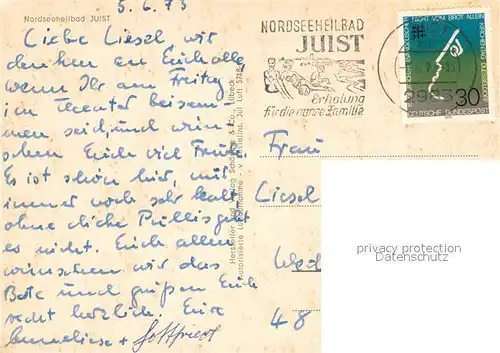 5.6.73
Nordseeheilbad JUIST
Liebe Liesel wir
denken an Euch alle,
wenn Ihr am Freitag
im Theater beisam
men seid, und wün
schen Euch viel Freude.
Es ist schön hier, nur
immer noch sehr kalt
ohne dicke Pullis geht
es nicht. Euch allen
wünschen wir das
Beste und grüßen Euch
recht herzlich. Eure
Anneliese + Gottfried
NORDSEEHEILBAD
JUIST
Erholung
für die ganze Familie
NICHT VOM BROT ALLEIN
30
DEUTSCHE BUNDESPOST
Frau
Liesel
48
privacy protection
Datenschutz